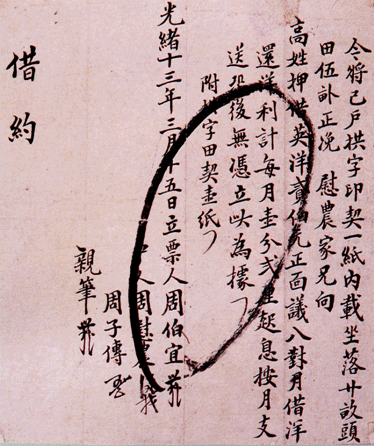 今將己戶拱字印契一紙內載坐落廿畝頭
田伍訃正浼 慰農家兄向
高姓押借英洋貳伯元正面議八對月借洋
還洋利計每月壹分弍厘起息按月支
送恐後無憑立此為據
附拱字田契壹紙
光緒十三年三月十五日立票人周伯宜
人周慰農
周子傳
親筆
借約